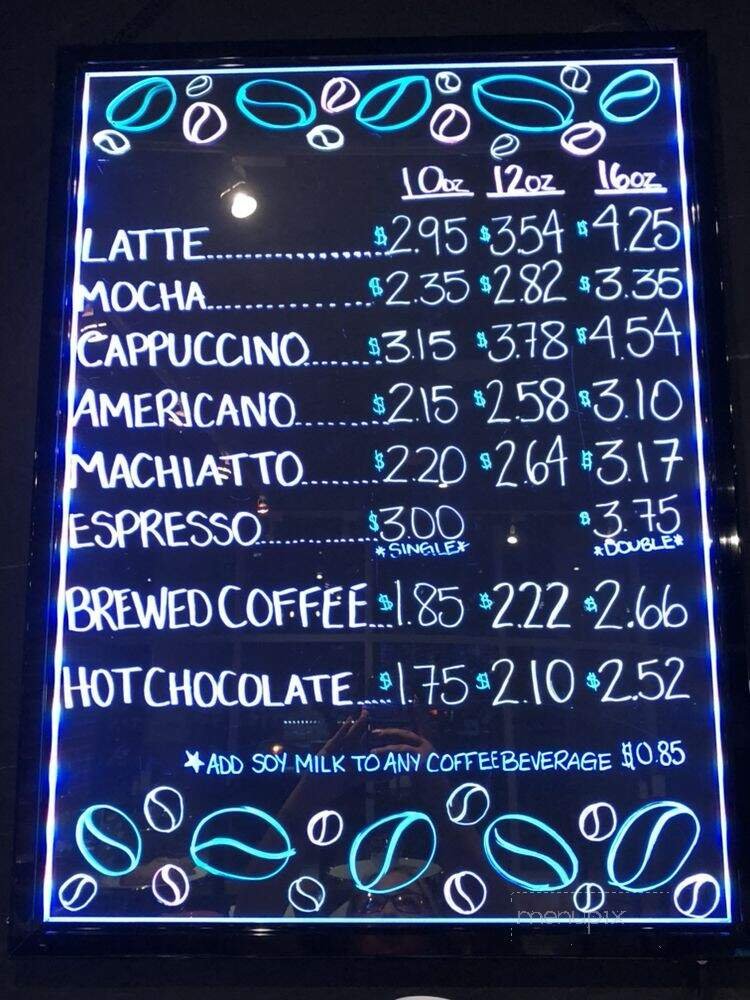 10oz 12oz 16oz
LATTE $2.95 $3.54 $4.25
MOCHA $2.35 $2.82 $3.35
CAPPUCCINO $3.15 $3.78 $4.54
AMERICANO $2.15 $2.58 $3.10
MACHIATTO $2.20 $2.64 $3.17
ESPRESSO $3.00 $3.75
*SINGLE* *DOUBLE*
BREWED COFFEE $1.85 $2.22 $2.66
HOT CHOCOLATE $1.75 $2.10 $2.52
★ADD SOY MILK TO ANY COFFEE BEVERAGE $0.85
menupix